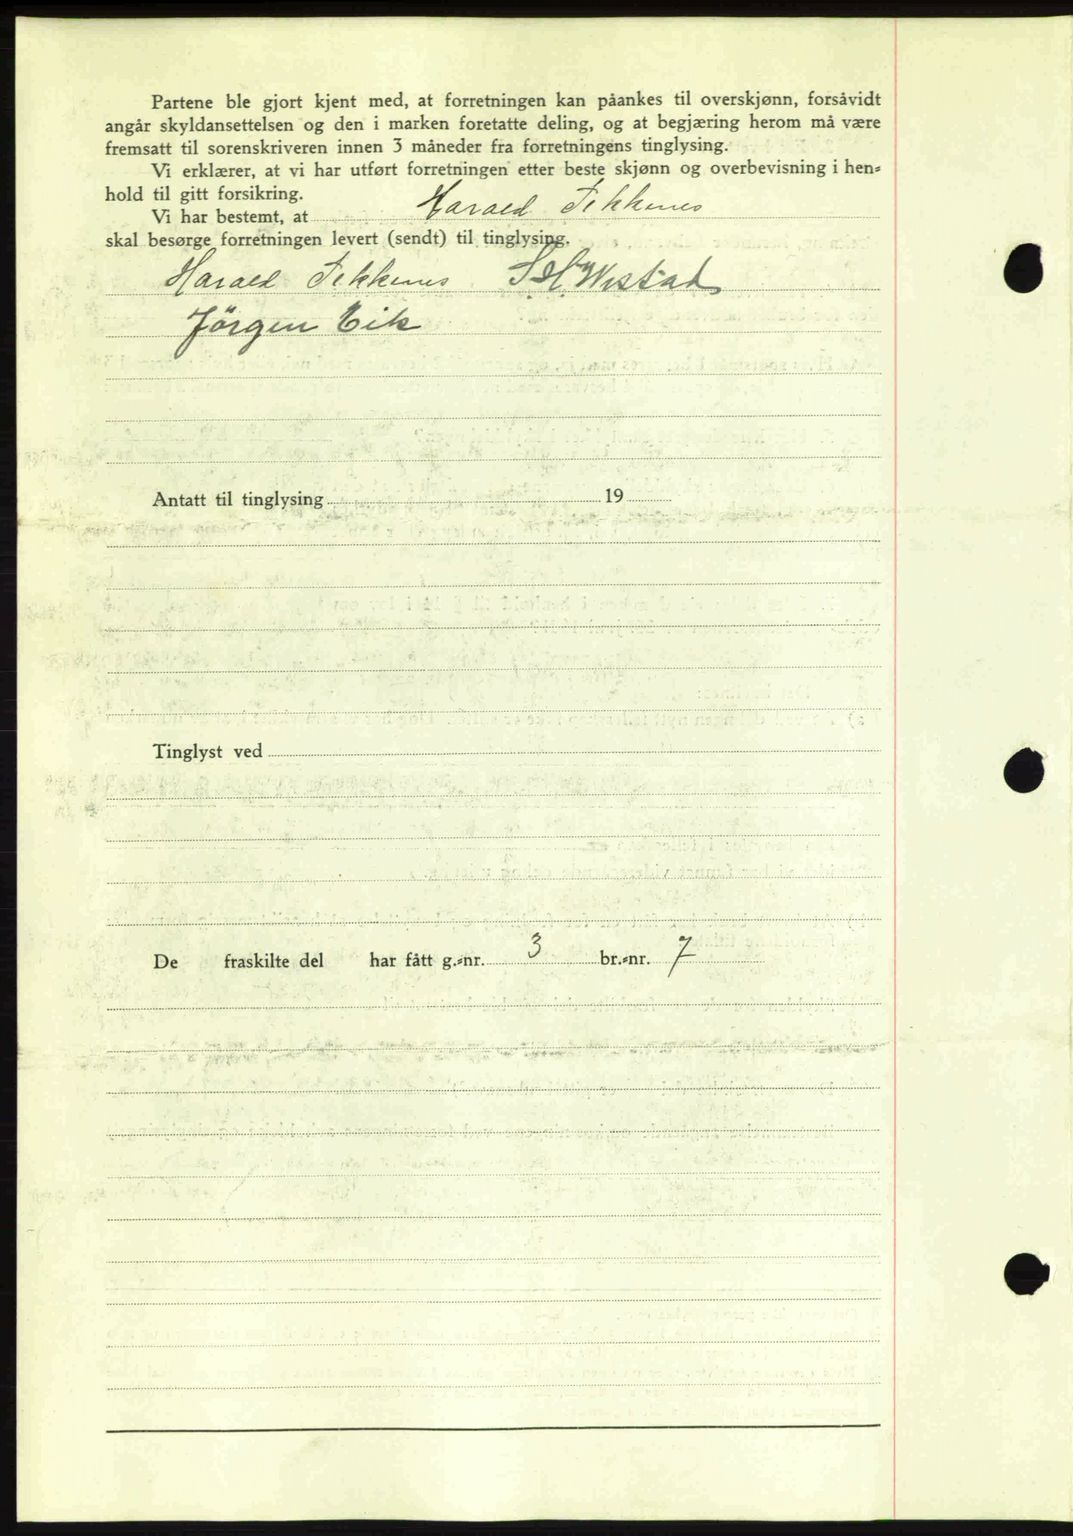 Partene ble gjort kjent med, at forretningen kan påankes til overskjønn, forsåvidt
angår skyldansettelsen og den i marken foretatte deling, og at begjæring herom må være
fremsatt til sorenskriveren innen 3 måneder fra forretningens tinglysing.
Vi erklærer, at vi har utført forretningen etter beste skjønn og overbevisning i hen=
hold til gitt forsikring.
Vi har bestemt, at Harald
skal besørge forretningen levert (sendt) til tinglysing.
Harald
Jörgen Eik
Antatt til tinglysing 19
Tinglyst ved
De fraskilte del har fått g.=nr. 3 br.=nr. 7